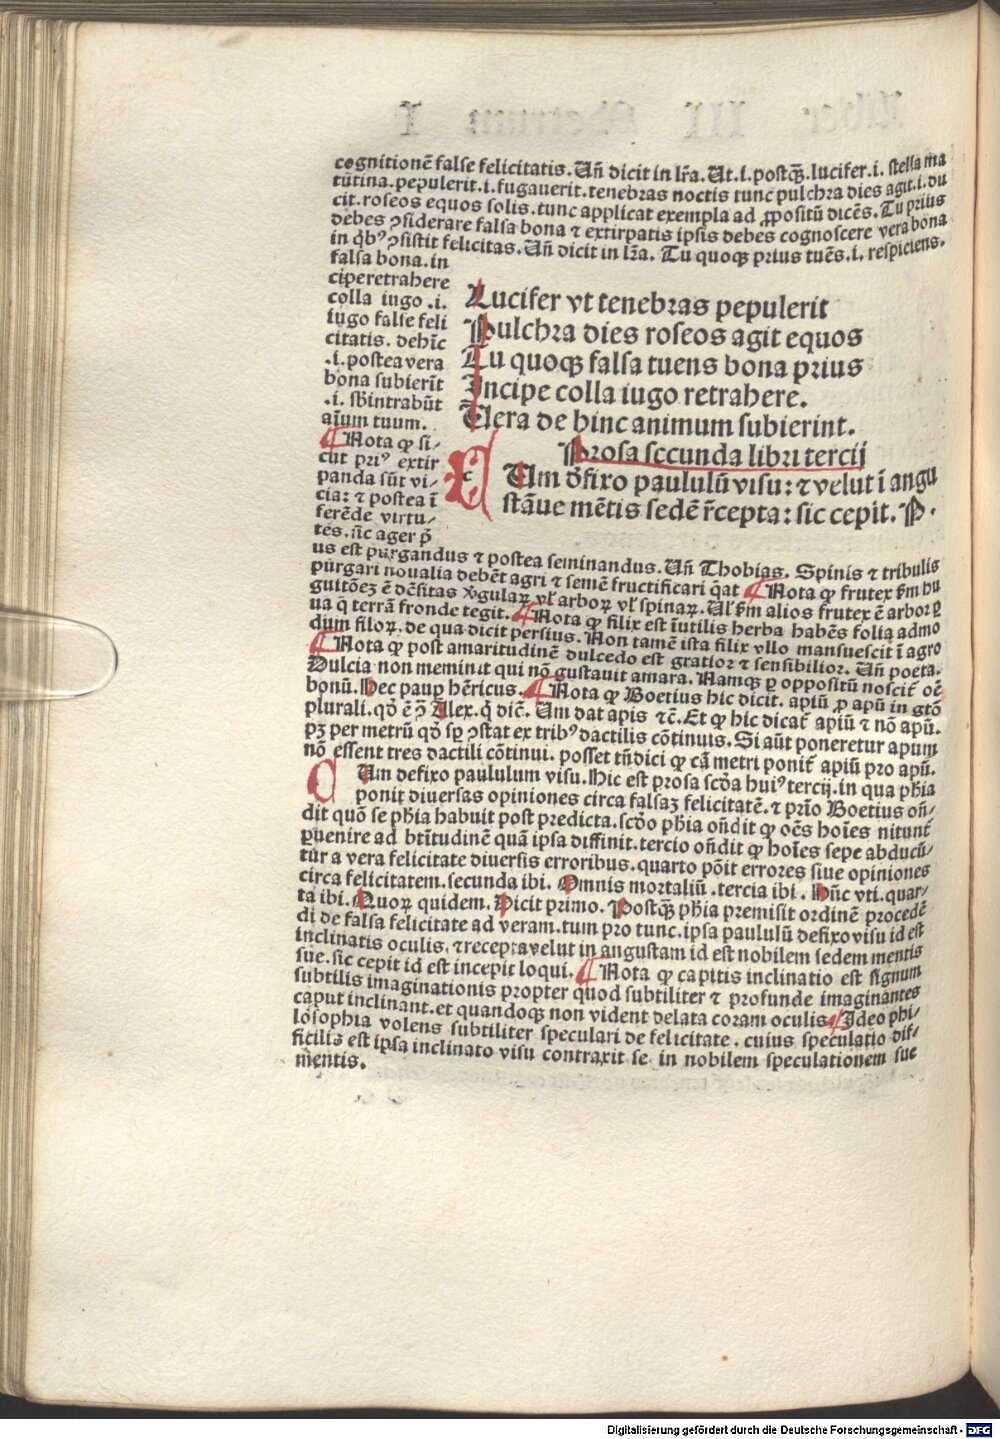 cognitionē false felicitatis. Uñ dicit in lr̄a. Ut. i. postq̄ȝ. lucifer. i. stella ma
tutina. pepulerit. i. fugauerit. tenebras noctis tunc pulchra dies agit. i. du
cit. roseos equos solis. tunc applicat exempla ad ꝓpositū dicēs. Tu prius
debes ꝯsiderare falsa bona ⁊ extirpatis ipsis debes cognoscere vera bona
in q̇bꝰ ꝯsistit felicitas. Uñ dicit in lr̄a. Tu quoqȝ prius tuēs. i. respiciens.
falsa bona. in
cipe retrahere
colla iugo .i.
iugo false feli
citatis. dehīc
.i. postea vera
bona subierīt
.i. sb̄intrabūt
aīum tuum.
Lucifer vt tenebras pepulerit
Pulchra dies roseos agit equos
Tu quoqȝ falsa tuens bona prius
Incipe colla iugo retrahere.
Uera de hinc animum subierint.
Prosa secunda libri tercij
c Um ďfixo paululū visu: ⁊ velut ī angu
stāue mētis sedē r̄cepta: sic cepit. P.
¶ Nota ꝙ si/
cut priꝰ extir
panda sūt vi/
cia: ⁊ postea ī
ferēde virtu/
tes. sīc ager p̄
us est purgandus ⁊ postea seminandus. Uñ Thobias. Spinis ⁊ tribulis
purgari noualia debēt agri ⁊ semē fructificari q̄at ¶ Nota ꝙ frutex ẜm hu
guitōeȝ ē dēsitas v̓gulaꝝ vl̓ arboꝝ vl̓ spinaꝝ. Ul̓ ẜm alios frutex ē arboꝝ ꝑ
ua q̄ terrā fronde tegit. ¶ Nota ꝙ filix est īutilis herba habēs folia admo
dum filoꝝ. de qua dicit persius. Non tamē ista filix vllo mansuescit ī agro
¶ Nota ꝙ post amaritudinē dulcedo est gratior ⁊ sensibilior. Uñ poeta.
Dulcia non meminit qui nō gustauit amara. Namqȝ ꝑ oppositū noscit̄ oē
bonū. Hec paup̱ hēricus. ¶ Nota ꝙ Boetius hic dicit. apiū ꝓ apū in gtō
plurali. qď ē ꝯ̄ Alex. q̇ dic̄. Um dat apis ⁊c̄. Et ꝙ hic dicat̄ apiū ⁊ nō apū.
pȝ per metrū qď sꝑ ꝯstat ex tribꝰ dactilis cōtinuis. Si aūt poneretur apum
nō essent tres dactili cōtinui. posset tñ dici ꝙ cā metri ponit̄ apiū pro apū.
Um defixo paululum visu. Hic est prosa scďa huiꝰ tercij. in qua ph̄ia
ponit diuersas opiniones circa falsaȝ felicitatē. ⁊ prīo Boetius oñ/
dit quō se ph̄ia habuit post predicta. scďo ph̄ia oñdit ꝙ oēs hoīes nitunt̄
ꝑuenire ad bt̄itudinē quā ipsa diffinit. tercio oñdit ꝙ hoīes sepe abducū/
tur a vera felicitate diuersis erroribus. quarto pōit errores siue opiniones
circa felicitatem. secunda ibi. Omnis mortaliū. tercia ibi. Hūc vti. quar/
ta ibi. Quoꝝ quidem. Dicit primo. Postq̄ȝ ph̄ia premisit ordinē procedē
di de falsa felicitate ad veram. tum pro tunc. ipsa paululū defixo visu id est
inclinatis oculis. ⁊ recepta velut in angustam id est nobilem sedem mentis
sue. sic cepit id est incepit loqui. ¶ Nota ꝙ capitis inclinatio est signum
subtilis imaginationis propter quod subtiliter ⁊ profunde imaginantes
caput inclinant. et quandoqȝ non vident delata coram oculis ¶ Ideo phi/
losophia volens subtiliter speculari de felicitate. cuius speculatio dif/
ficilis est ipsa inclinato visu contraxit se in nobilem speculationem sue
mentis.
Digitalisierung gefördert durch die Deutsche Forschungsgemeinschaft - DFG